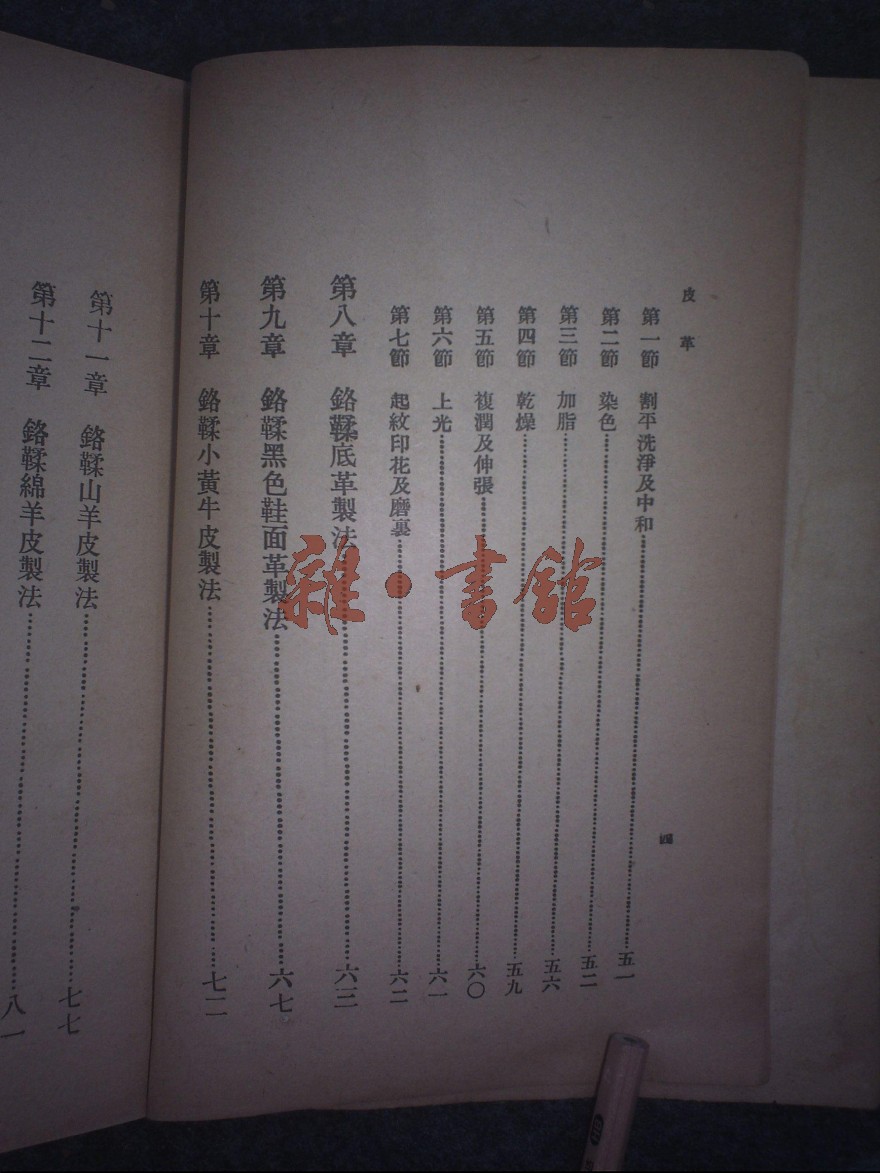 皮革
四
第一節 割平洗淨及中和 五一
第二節 染色 五二
第三節 加脂 五六
第四節 乾燥 五九
第五節 複潤及伸張 六〇
第六節 上光 六一
第七節 起紋印花及磨裏 六二
第八章 鉻鞣底革製法 六三
第九章 鉻鞣黑色鞋面革製法 六七
第十章 鉻鞣小黃牛皮製法 七二
第十一章 鉻鞣山羊皮製法 七七
第十二章 鉻鞣綿羊皮製法 八一
雜·書館